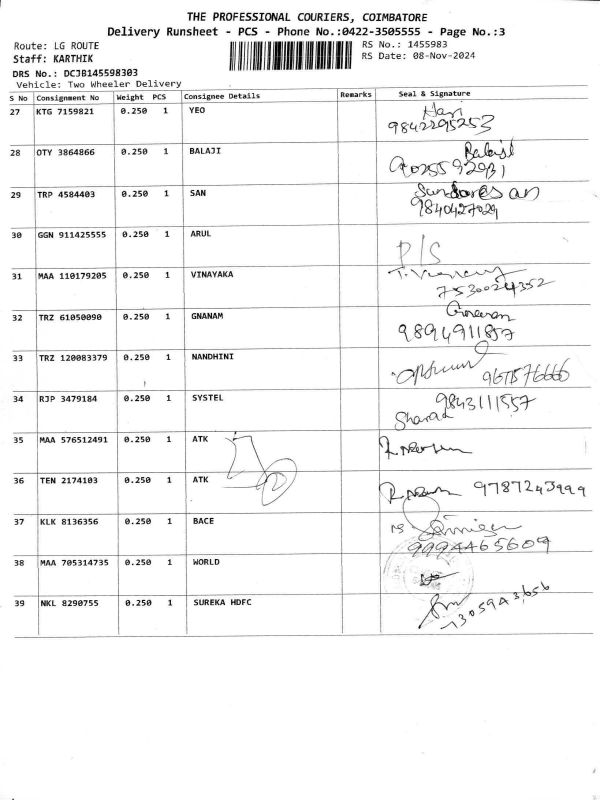 THE PROFESSIONAL COURIERS, COIMBATORE
Delivery Runsheet - PCS - Phone No.:0422-3505555 - Page No.:3
Route: LG ROUTE RS No.: 1455983
Staff: KARTHIK RS Date: 08-Nov-2024
DRS No.: DCJB145598303
Vehicle: Two Wheeler Delivery
S No Consignment No Weight PCS Consignee Details Remarks Seal & Signature
27 KTG 7159821 0.250 1 YEO Hari
9842295253
28 OTY 3864866 0.250 1 BALAJI Balaji
9025592931
29 TRP 4584403 0.250 1 SAN Sundaresan
9840427029
30 GGN 911425555 0.250 1 ARUL P/S
31 MAA 110179205 0.250 1 VINAYAKA
7530024352
32 TRZ 61050090 0.250 1 GNANAM
9894911857
33 TRZ 120083379 0.250 1 NANDHINI
34 RJP 3479184 0.250 1 SYSTEL 9843111557
Sharada
35 MAA 576512491 0.250 1 ATK
36 TEN 2174103 0.250 1 ATK
37 KLK 8136356 0.250 1 BACE
9994465609
38 MAA 705314735 0.250 1 WORLD
39 NKL 8290755 0.250 1 SUREKA HDFC